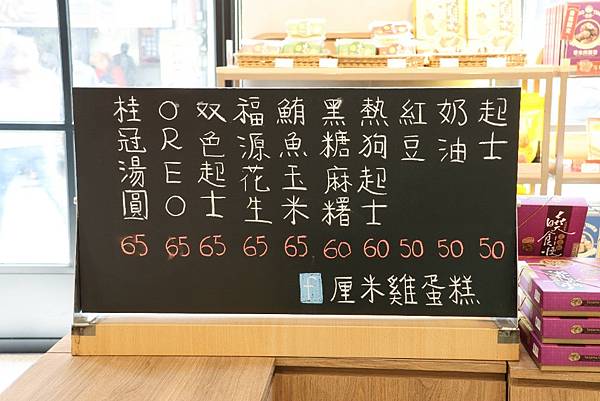 起士 50
奶油 50
紅豆 50
熱狗起士 60
黑糖麻糬 60
鮪魚玉米 65
福源花生 65
双色起士 65
OREO 65
桂冠湯圓 65
f 厘米雞蛋糕